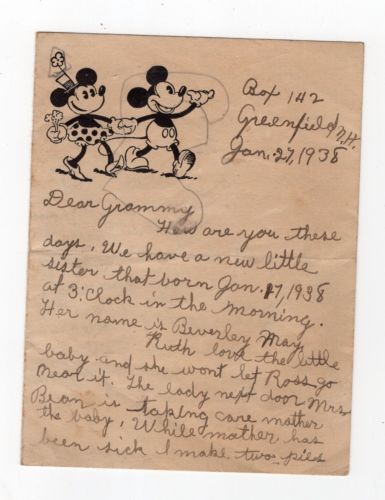 Box 142
Greenfield N.H.
Jan. 27, 1938
Dear Grammy
How are you these
days. We have a new little
sister that born Jan. 17, 1938
at 3:Clock in the morning.
Her name is Beverley May
Ruth love the little
baby and she wont let Ross go
near it. The lady next door Mrs
Bean is taping care mather
the baby, While mather has
been sick I make two pies